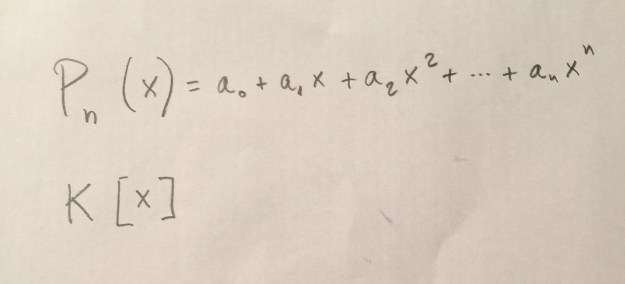 Pₙ(x) = a₀ + a₁x + a₂x² + ... + aₙxⁿ
K[x]